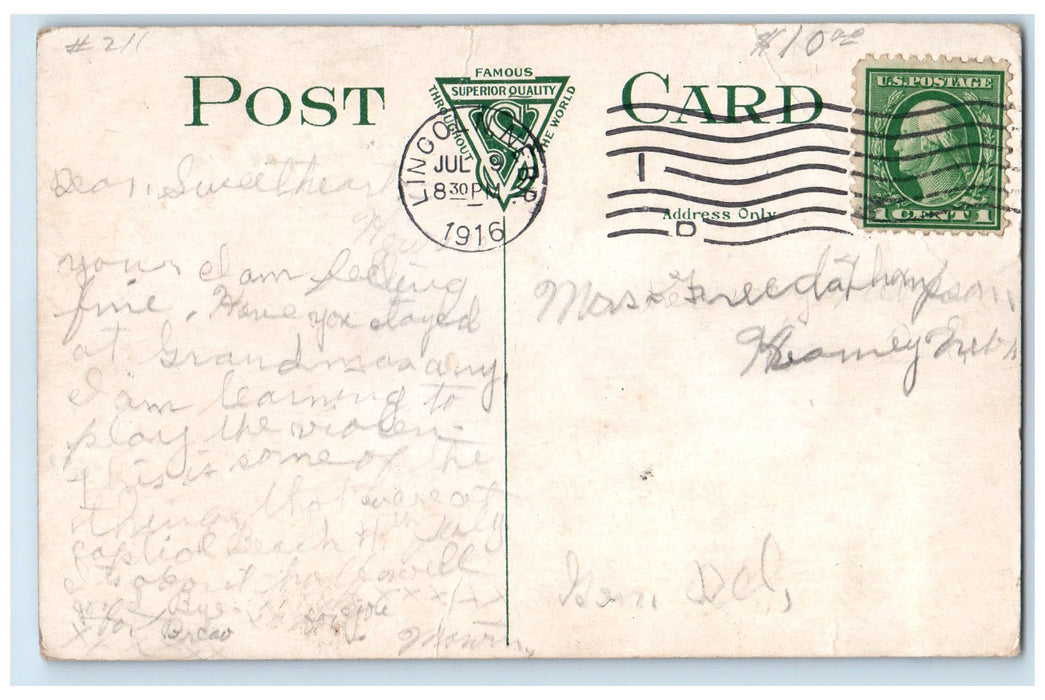 #211
$10.00
POST CARD
FAMOUS
SUPERIOR QUALITY
THROUGHOUT THE WORLD
U.S. POSTAGE
1 CENT 1
LINCOLN, NEBR.
JUL 9
8 30 PM
1916
D
Address Only
Dear Sweetheart
How
your I am feeling
fine. Have you stayed
at Grandmas any
I am learning to
play the violen
this is some of the
things that were at
Captiol Beach 4th July
good Bye
xxxxxx
for
Freeda Thompson,
Kearney Nebr
Gen. Del,